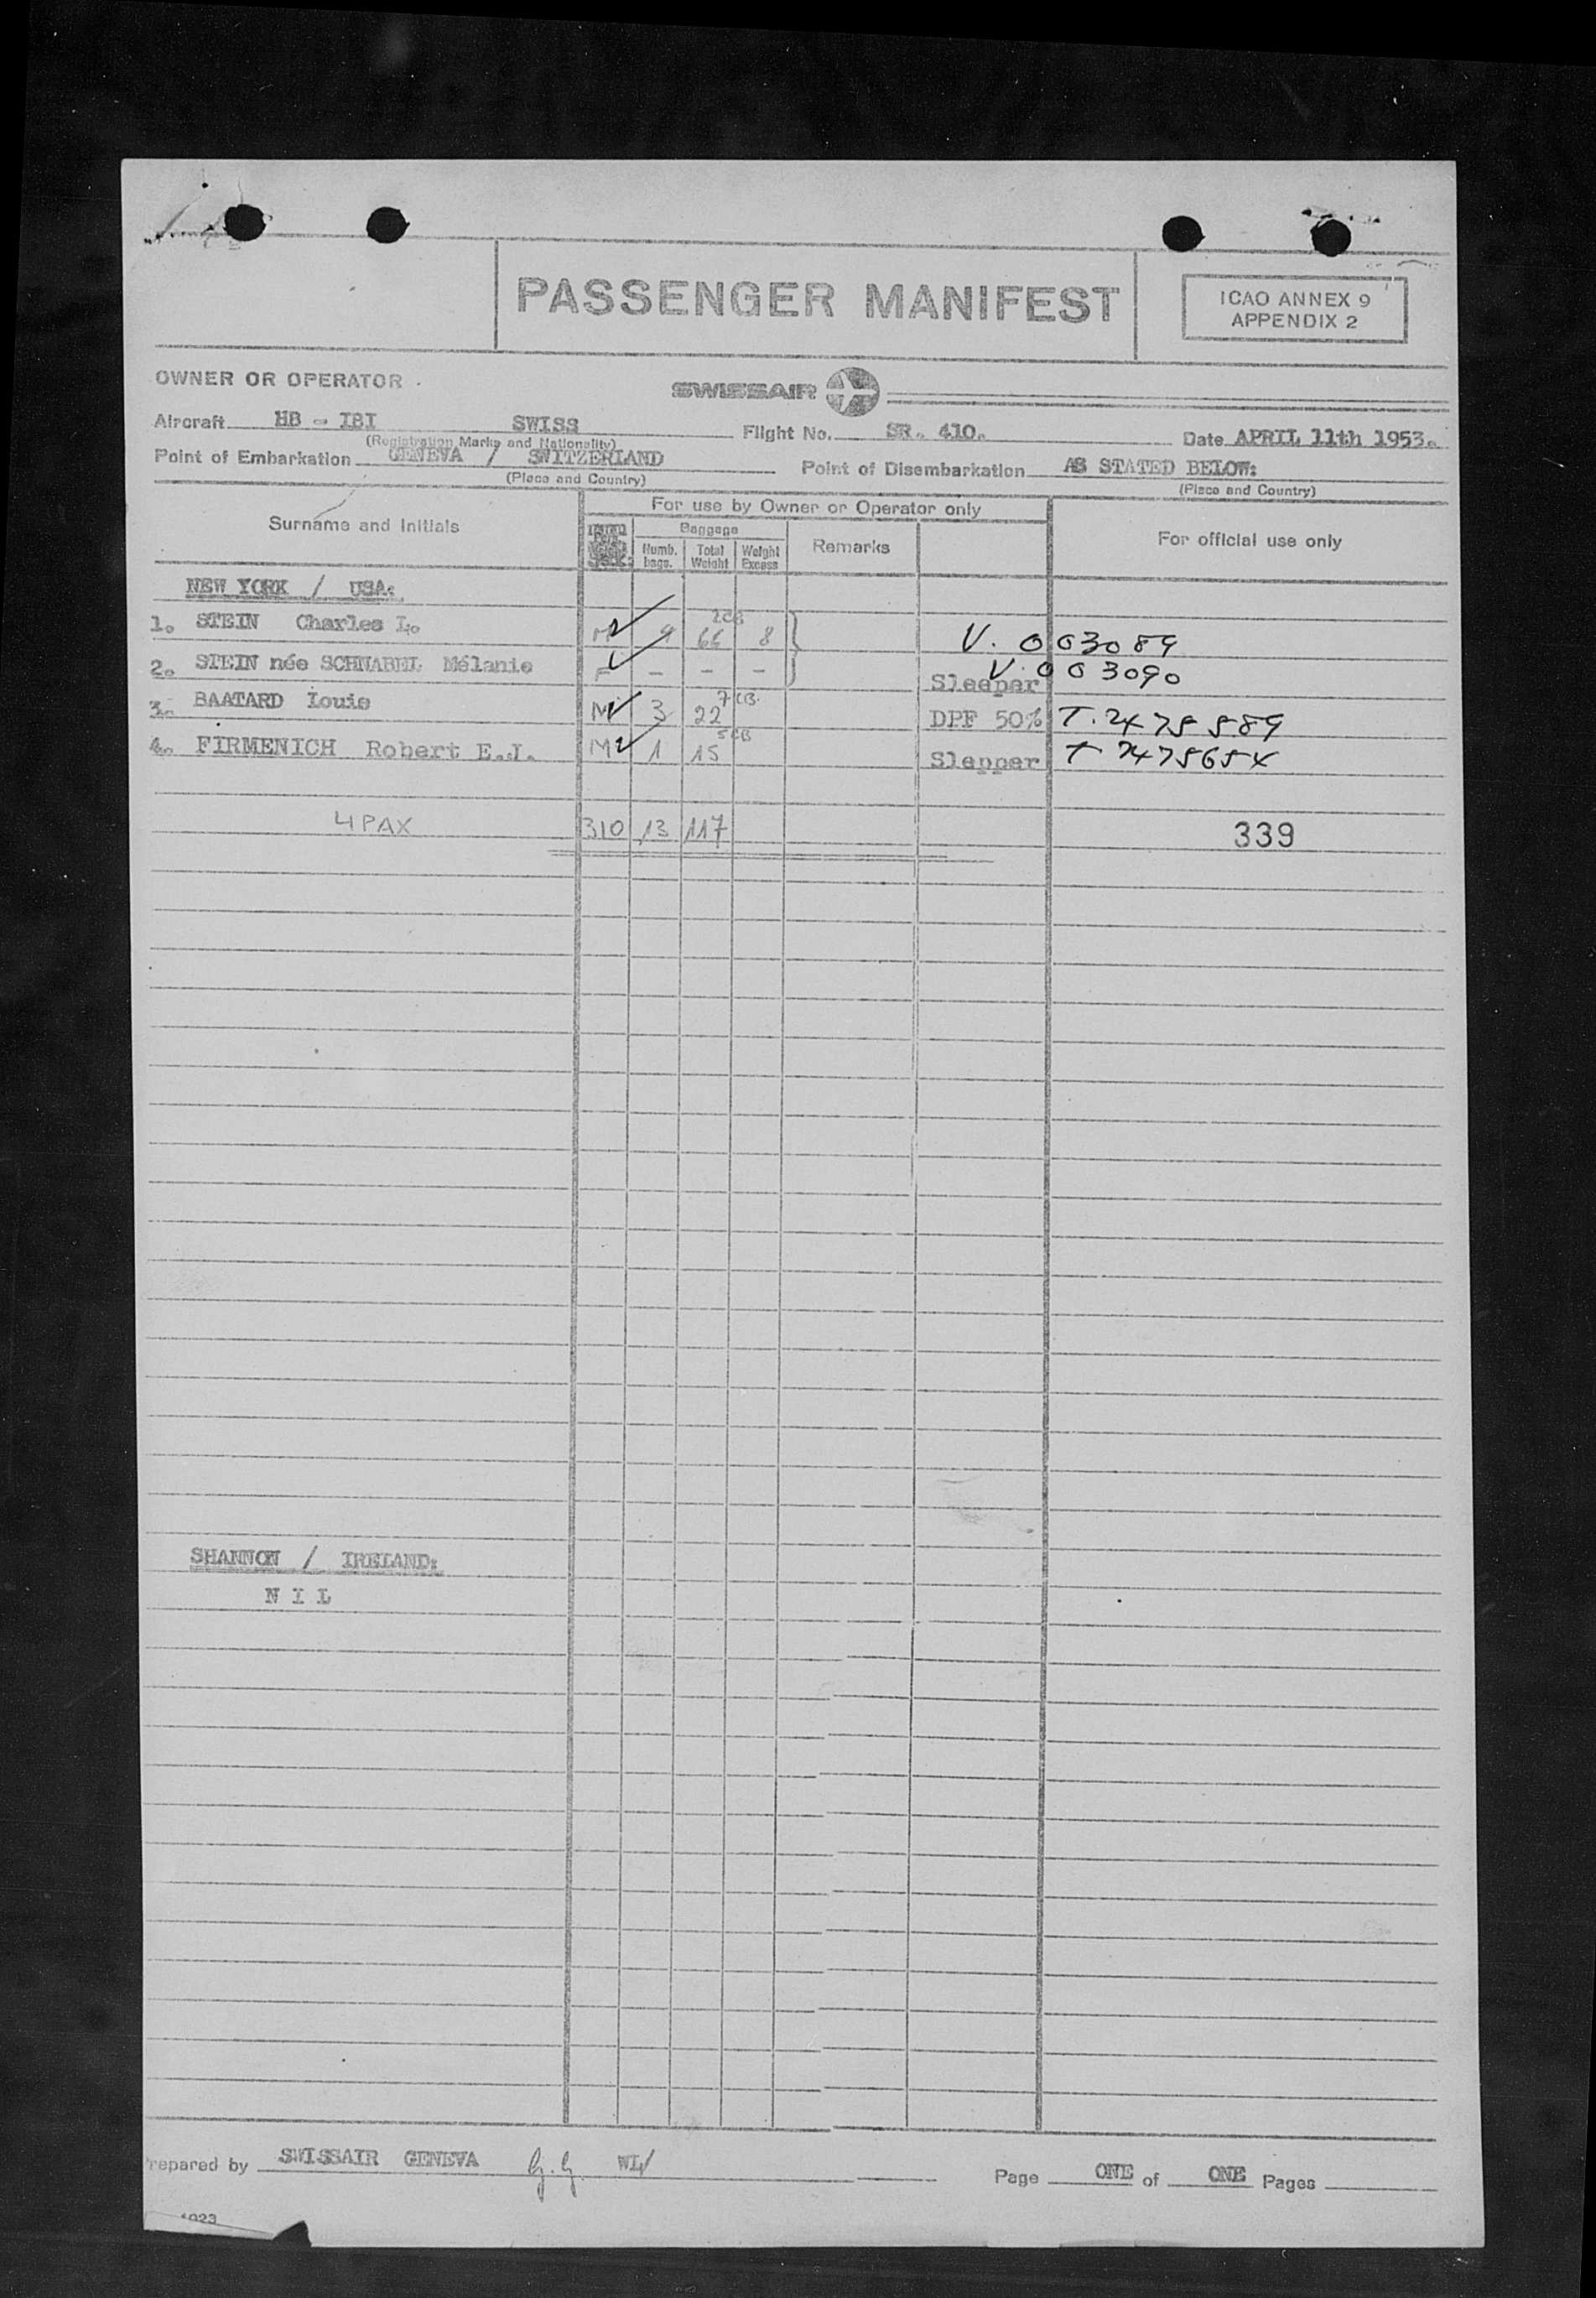 PASSENGER MANIFEST
ICAO ANNEX 9
APPENDIX 2
OWNER OR OPERATOR
SWISSAIR
Aircraft HB - IBI SWISS Flight No. SR. 410. Date APRIL 11th 1953.
(Registration Marks and Nationality)
Point of Embarkation GENEVA / SWITZERLAND Point of Disembarkation AS STATED BELOW:
(Place and Country) (Place and Country)
For use by Owner or Operator only
Surname and Initials Baggage Remarks For official use only
Numb. bags. Total Weight Weight Excess
NEW YORK / USA:
1. STEIN Charles L. M 9 66 2CB 8 V. 003089
2. STEIN née SCHNABEL Mélanie F - - - Sleeper V. 003090
3. BAATARD Louis M 3 22 7CB DPF 50% T. 2475589
4. FIRMENICH Robert E.J. M 1 15 5CB Slepper T 2475654
4 PAX 310 13 117 339
SHANNON / IRELAND:
N I L
repared by SWISSAIR GENEVA WL/ Page ONE of ONE Pages